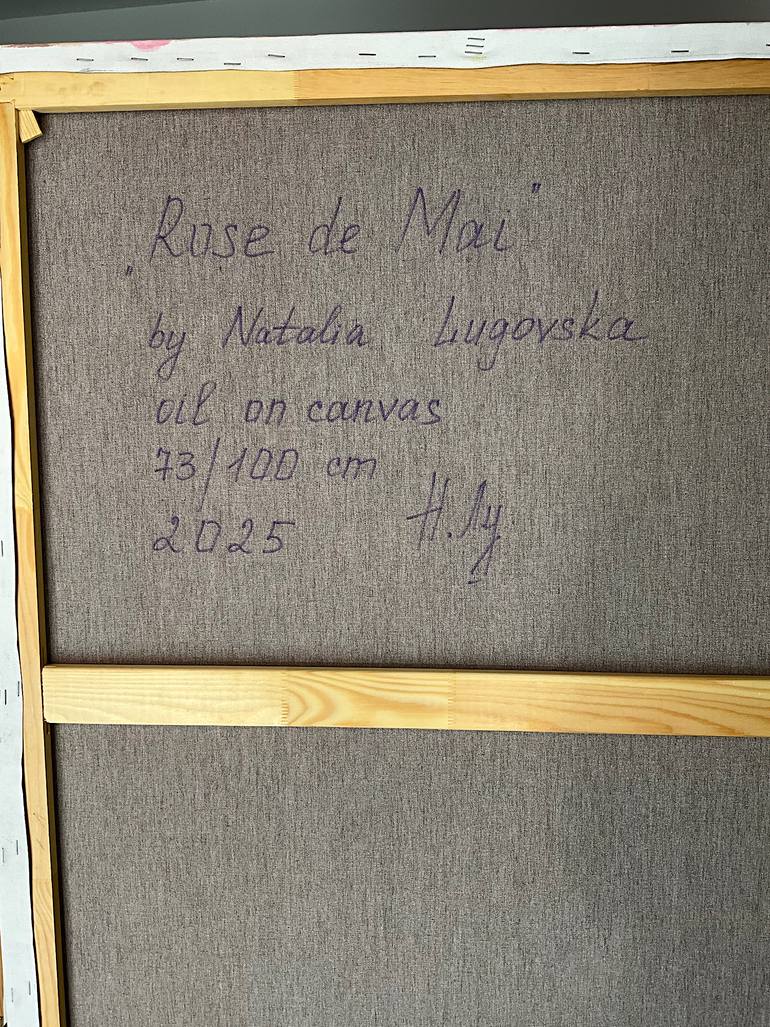 „Rose de Mai"
by Natalia Lugovska
oil on canvas
73/100 cm
2025 Н.Лу